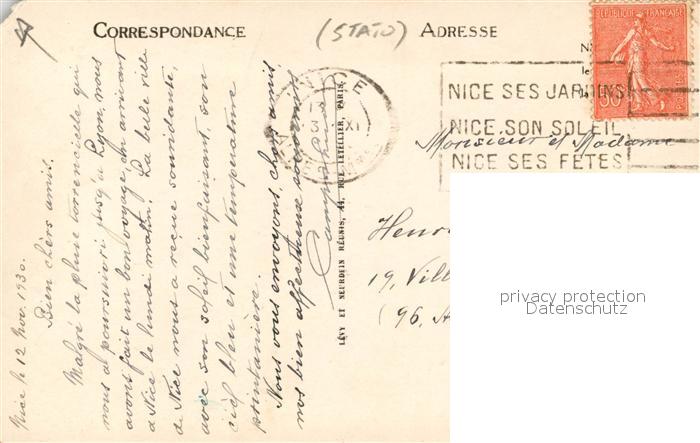 CORRESPONDANCE
(STATO)
ADRESSE
Nice le 12 Nov. 1930.
Bien chers amis.
Malgré la pluie torrencielle qui
nous a poursuivi jusqu'à Lyon, nous
avons fait un bon voyage, en arrivant
à Nice le lundi matin. La belle ville
de Nice nous a reçue souriante,
avec son soleil bienfaisant, son
ciel bleu et une température
printanière.
Nous vous envoyons, chers amis,
nos bien affectueux souvenirs
LÉVY ET NEURDEIN RÉUNIS, 44, RUE LETELLIER, PARIS
NICE
13
XI
REPUBLIQUE FRANÇAISE
50
NICE SES JARDINS
NICE SON SOLEIL
NICE SES FÊTES
Monsieur et Madame
Henr
19, Vill
(96, A
privacy protection
Datenschutz